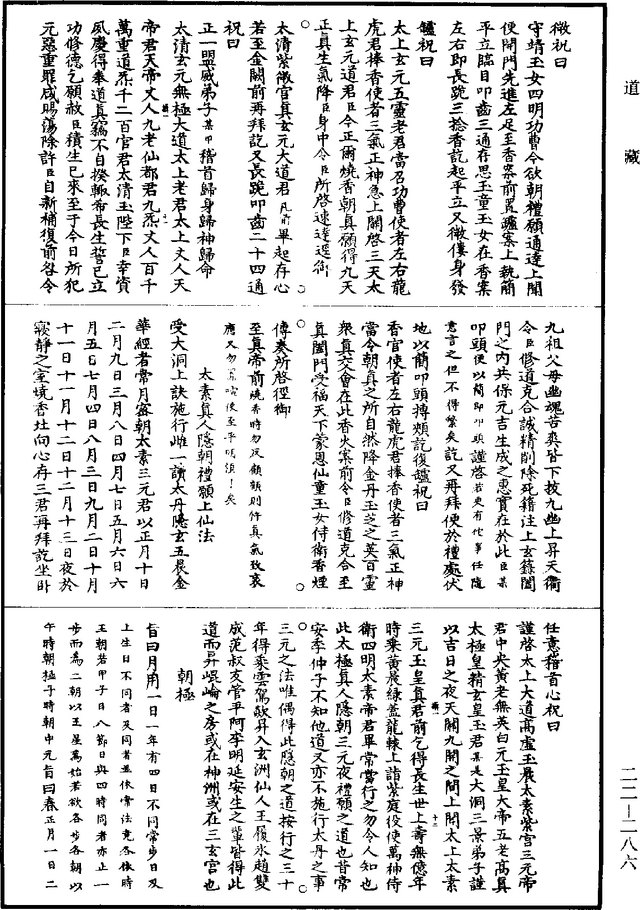 道藏
微祝曰
守靖玉女四明功曹今欲朝禮願通達上聞
便開門先進左足至香案前置鑪案上執簡
平立臨目叩齒三通存思玉童玉女在香案
左右即長跪三捻香訖起平立又微僂身發
鑪祝曰
太上玄元五靈老君當召功曹使者左右龍
虎君捧香使者三氣正神急上關啓三天太
上玄元道君臣今正爾燒香朝真願得九天
正真生氣降臣身中令臣所啓速達逕御
太清紫微宮真玄元大道君凡前畢起存心
若至金闕前再拜訖又長跪叩齒二十四通
祝曰
正一盟威弟子某甲稽首歸身歸神歸命
太清玄元無極大道太上老君太上丈人天
帝君天帝丈人九老仙都君九炁丈人百千
萬重道炁千二百官君太清玉陛下臣幸資
風慶得奉道真竊不自揆輙希長生誓已立
功修德乞願赦臣積生已來至于今日所犯
元惡重罪咸賜蕩除許臣自新補復前咎令
九祖父母幽魂苦爽皆下拔九幽上昇天衢
令臣修道克合誠精削除死籍注上玄籙闔
門之内共保元吉生成之惠實在於此臣某
叩頭便以簡叩頭謹啓若更有他事任隨
意言之但不得繁矣訖又再拜便於禮處伏
地以簡叩頭搏頰訖復鑪祝曰
香官使者左右龍虎君捧香使者三氣正神
當令朝真之所自然降金丹玉芝之英百靈
衆真交會在此香火案前令臣修道克合至
真闔門受福天下蒙恩仙童玉女侍衛香煙
傳奏所啓徑御
至真帝前燒香時勿反顧顧則忤真氣致衰
應又勿
太素真人隱朝禮願上仙法
受大洞上訣施行雌一讀太丹隱玄五晨金
華經者常月密朝太素三元君以正月十日
二月九日三月八日四月七日五月六日六
月五日七月四日八月三日九月二日十月
十一日十一月十二日十二月十三日夜於
寢静之室燒香灶向心存三君再拜訖坐卧
任意稽首心祝曰
謹啓太上大道高虛玉晨太素紫宫三元帝
君中央黄老無英白元玉皇大帝五老高真
太極皇精玄皇玉君某是大洞三景弟子謹
以吉日之夜天關九開之間上聞太上太素
三元玉皇真君前乞得長生世上壽無億年
時乘黄晨緑蓋龍轅上詣紫庭役使萬神侍
衛四明太素帝君畢常嘗行之勿令人知也
此太極真人隱朝三元夜禮願之道也昔常
安李仲子不知他道又亦不施行太丹之事
三元之法唯偶得此隱朝之道按行之三十
年得乘雲駕歘昇入玄洲仙人王履氷趙雙
成范叔友管平阿李明延安生之輩皆得此
道而昇崐崘之房或在神洲或在三玄宮也
朝極
旨曰月用一日一年有四日不同常步日及
上生日不同者及同者並依常法竟各依時
王朝若甲子日八節日與四時同者亦止一
步而爲二朝以王星爲始若欲各步各朝以
午時朝極子時朝中元旨曰春正月一日二
二二—二八六